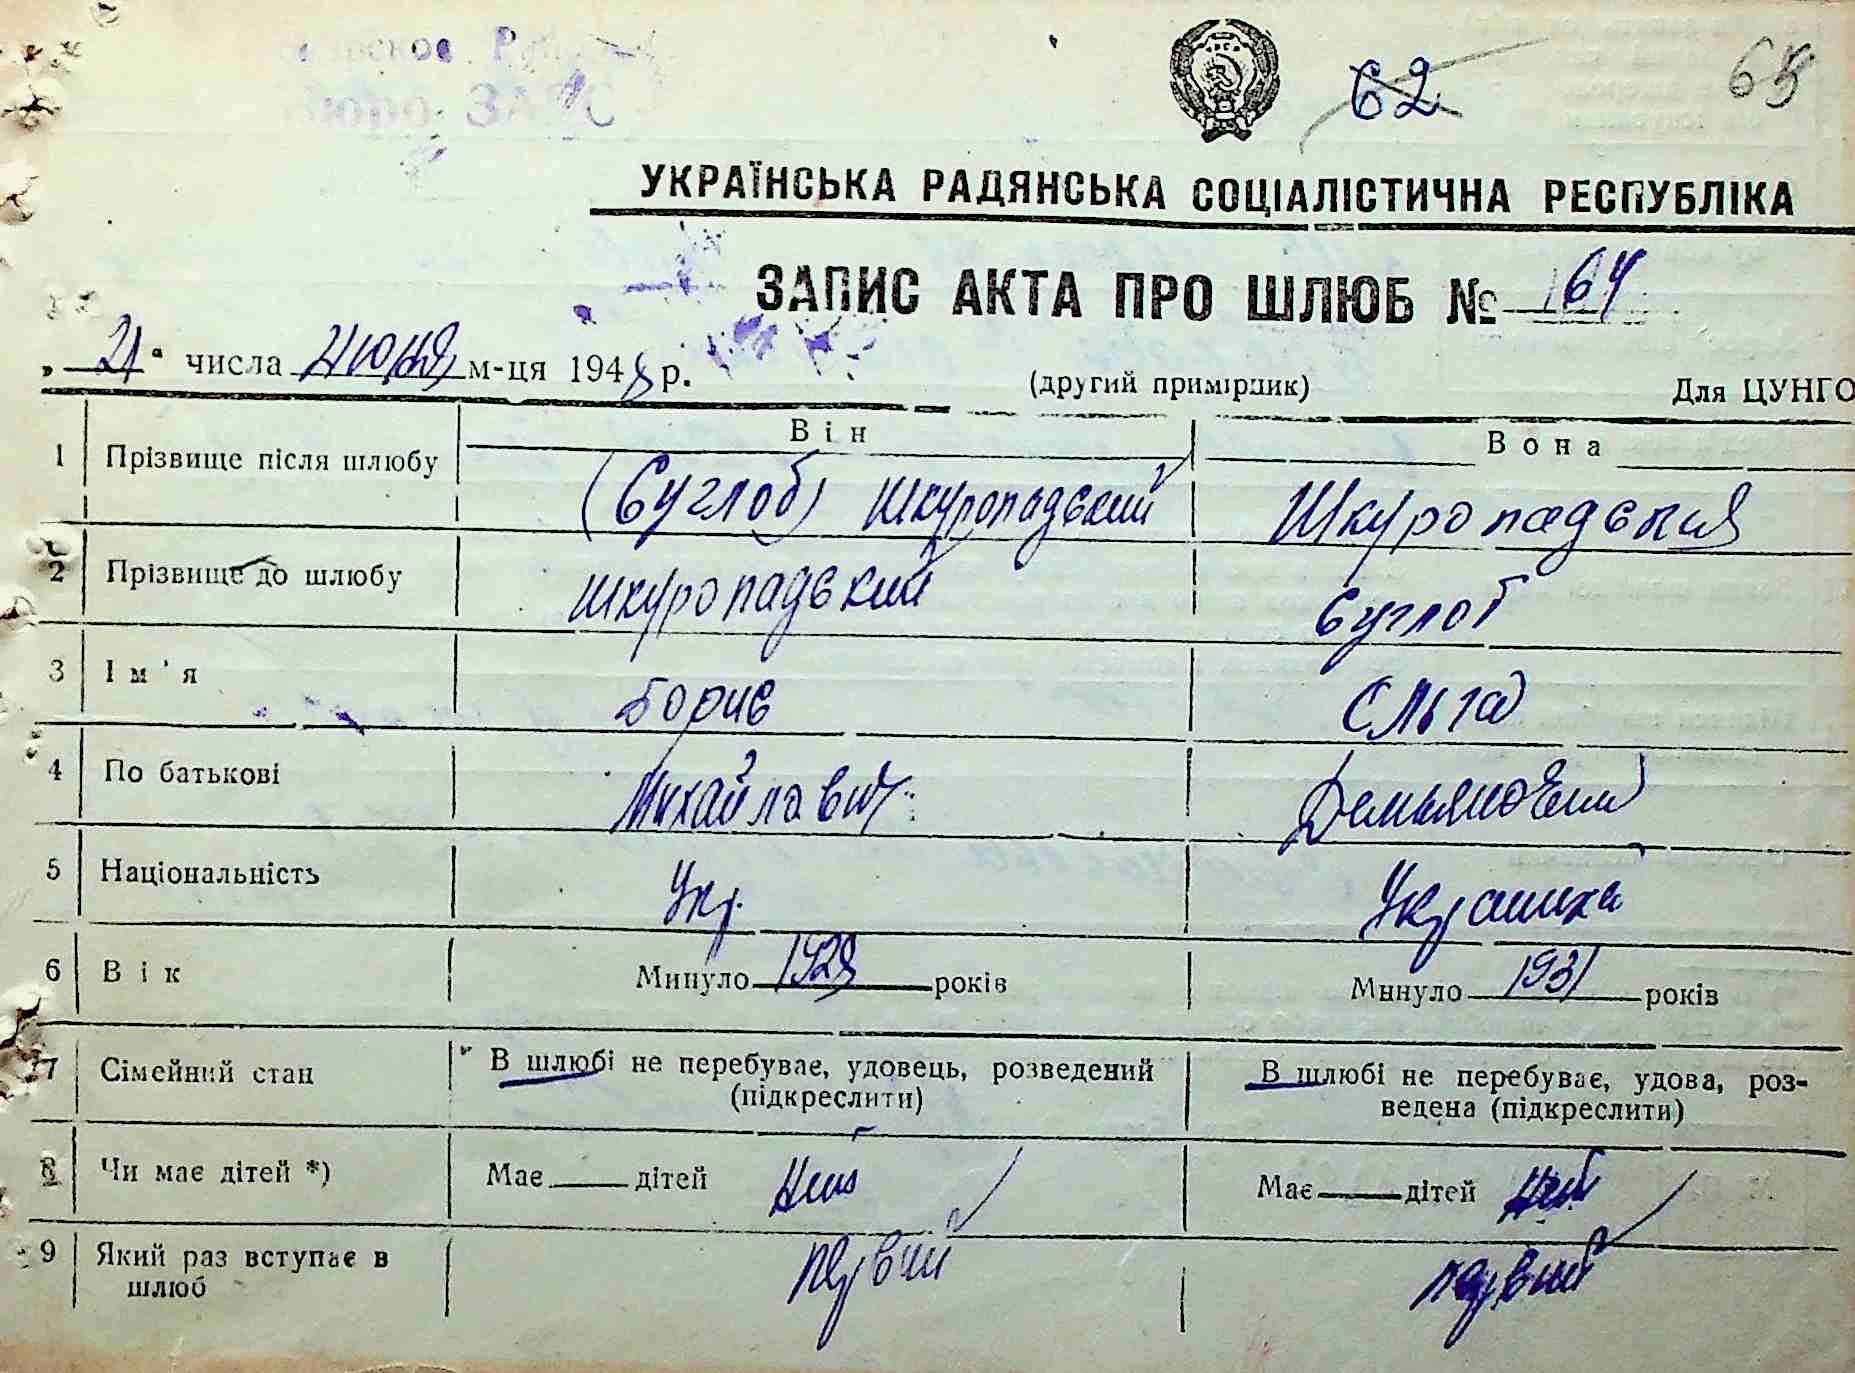 62 64
УКРАЇНСЬКА РАДЯНСЬКА СОЦІАЛІСТИЧНА РЕСПУБЛІКА
ЗАПИС АКТА ПРО ШЛЮБ № 64
„21“ числа июля м-ця 1948 р.
(другий примірник) Для ЦУНГО
Він Вона
1 Прізвище після шлюбу (Суглоб) Шкуропадский Шкуропадская
2 Прізвище до шлюбу Шкуропадский Суглоб
3 Ім'я Борис Ольга
4 По батькові Михайлавич Демьяновна
5 Національність Укр. Украинка
6 Вік Минуло 1928 років Минуло 1931 років
7 Сімейний стан В шлюбі не перебуває, удовець, розведений (підкреслити) В шлюбі не перебуває, удова, роз-
ведена (підкреслити)
8 Чи має дітей *) Має дітей Нет Має дітей Нет
9 Який раз вступає в шлюб первий первий